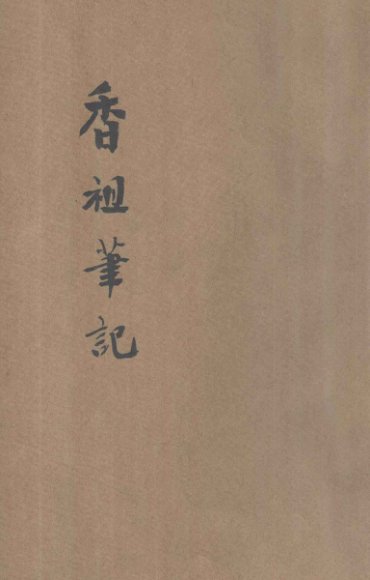 香祖筆記